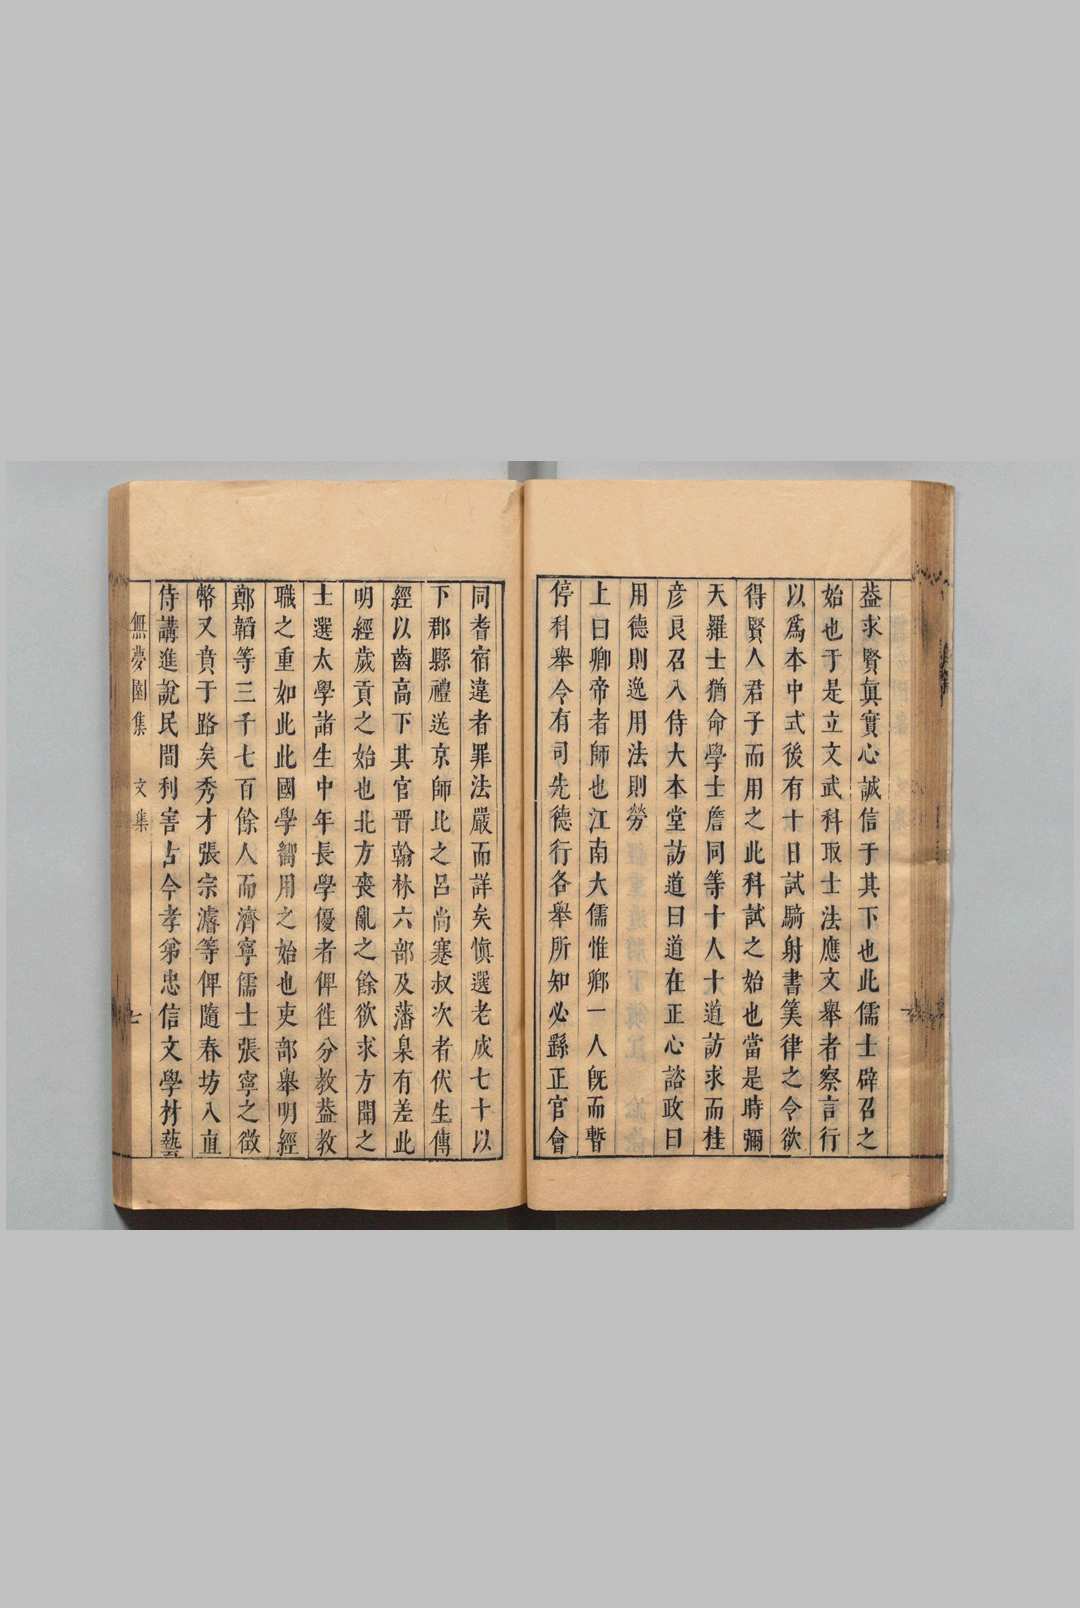 葢求賢眞實心誠信于其下也此儒士辟召之
始也于是立文武科取士法應文舉者察言行
以爲本中式後有十日試騎射書筭律之令欲
得賢人君子而用之此科試之始也當是時彌
天羅士猶命學士詹同等十人十道訪求而桂
彦良召入侍大本堂訪道曰道在正心諮政曰
用德則逸用法則勞
上曰卿帝者師也江南大儒惟卿一人旣而暫
停科舉令有司先德行各舉所知必繇正官會
同耆宿違者罪法嚴而詳矣慎選老成七十以
下郡縣禮送京師比之呂尚蹇叔次者伏生傳
經以齒高下其官晋翰林六部及藩臬有差此
明經歲貢之始也北方喪亂之餘欲求方聞之
士選太學諸生中年長學優者俾徃分教葢教
職之重如此此國學嚮用之始也吏部舉明經
鄭韜等三千七百餘人而濟寧儒士張寧之徴
幣又賁于路矣秀才張宗濬等俾隨春坊入直
侍講進說民間利害古今孝弟忠信文學材藝
無夢園集 文集 七